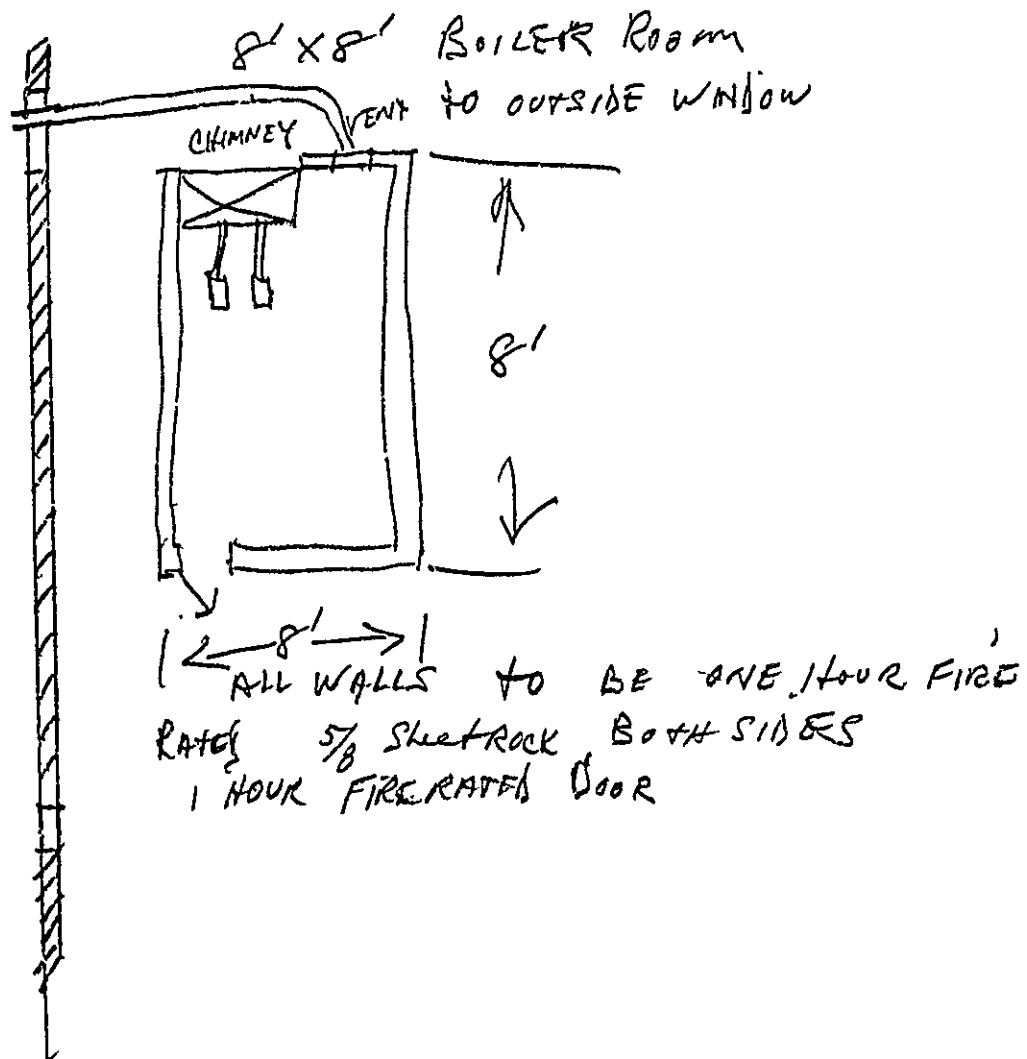 8' X 8' BOILER ROOM
TO OUTSIDE WINDOW
VENT
CHIMNEY
8'
8'
ALL WALLS TO BE ONE HOUR FIRE
RATED 5/8 SheetROCK BOTH SIDES
1 HOUR FIRE RATED DOOR